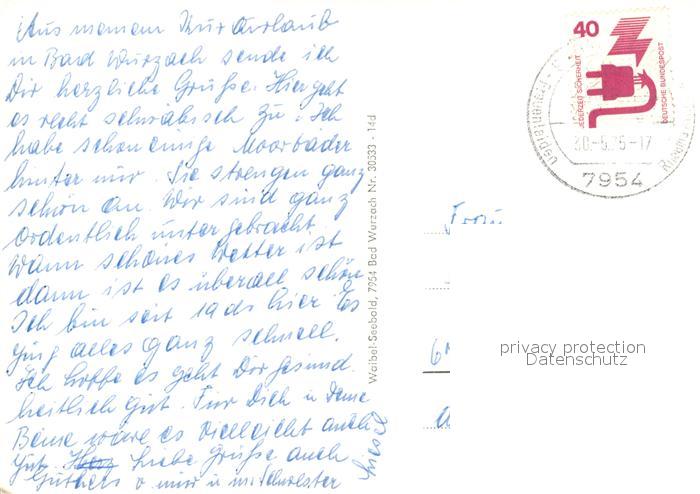 Aus meinem Kururlaub
in Bad Wurzach sende ich
Dir herzliche Grüße. Hier geht
es recht schwäbisch zu. Ich
habe schon einige Moorbäder
hinter mir. Sie strengen ganz
schön an. Wir sind ganz
ordentlich untergebracht.
Wann schönes Wetter ist
dann ist es überall schön
Ich bin seit 19ds hier Es
ging alles ganz schnell.
Ich hoffe es geht Dir gesund
heitlich gut. Für Dich u Deine
Beine wäre es vielleicht auch
gut. Liebe Grüße auch
v mir u m. Schwester
Liesel
Waibel-Seebold, 7954 Bad Wurzach Nr. 30533 - 14d
40
JEDERZEIT SICHERHEIT
DEUTSCHE BUNDESPOST
30.-5.75-17
7954
Frau
privacy protection
Datenschutz